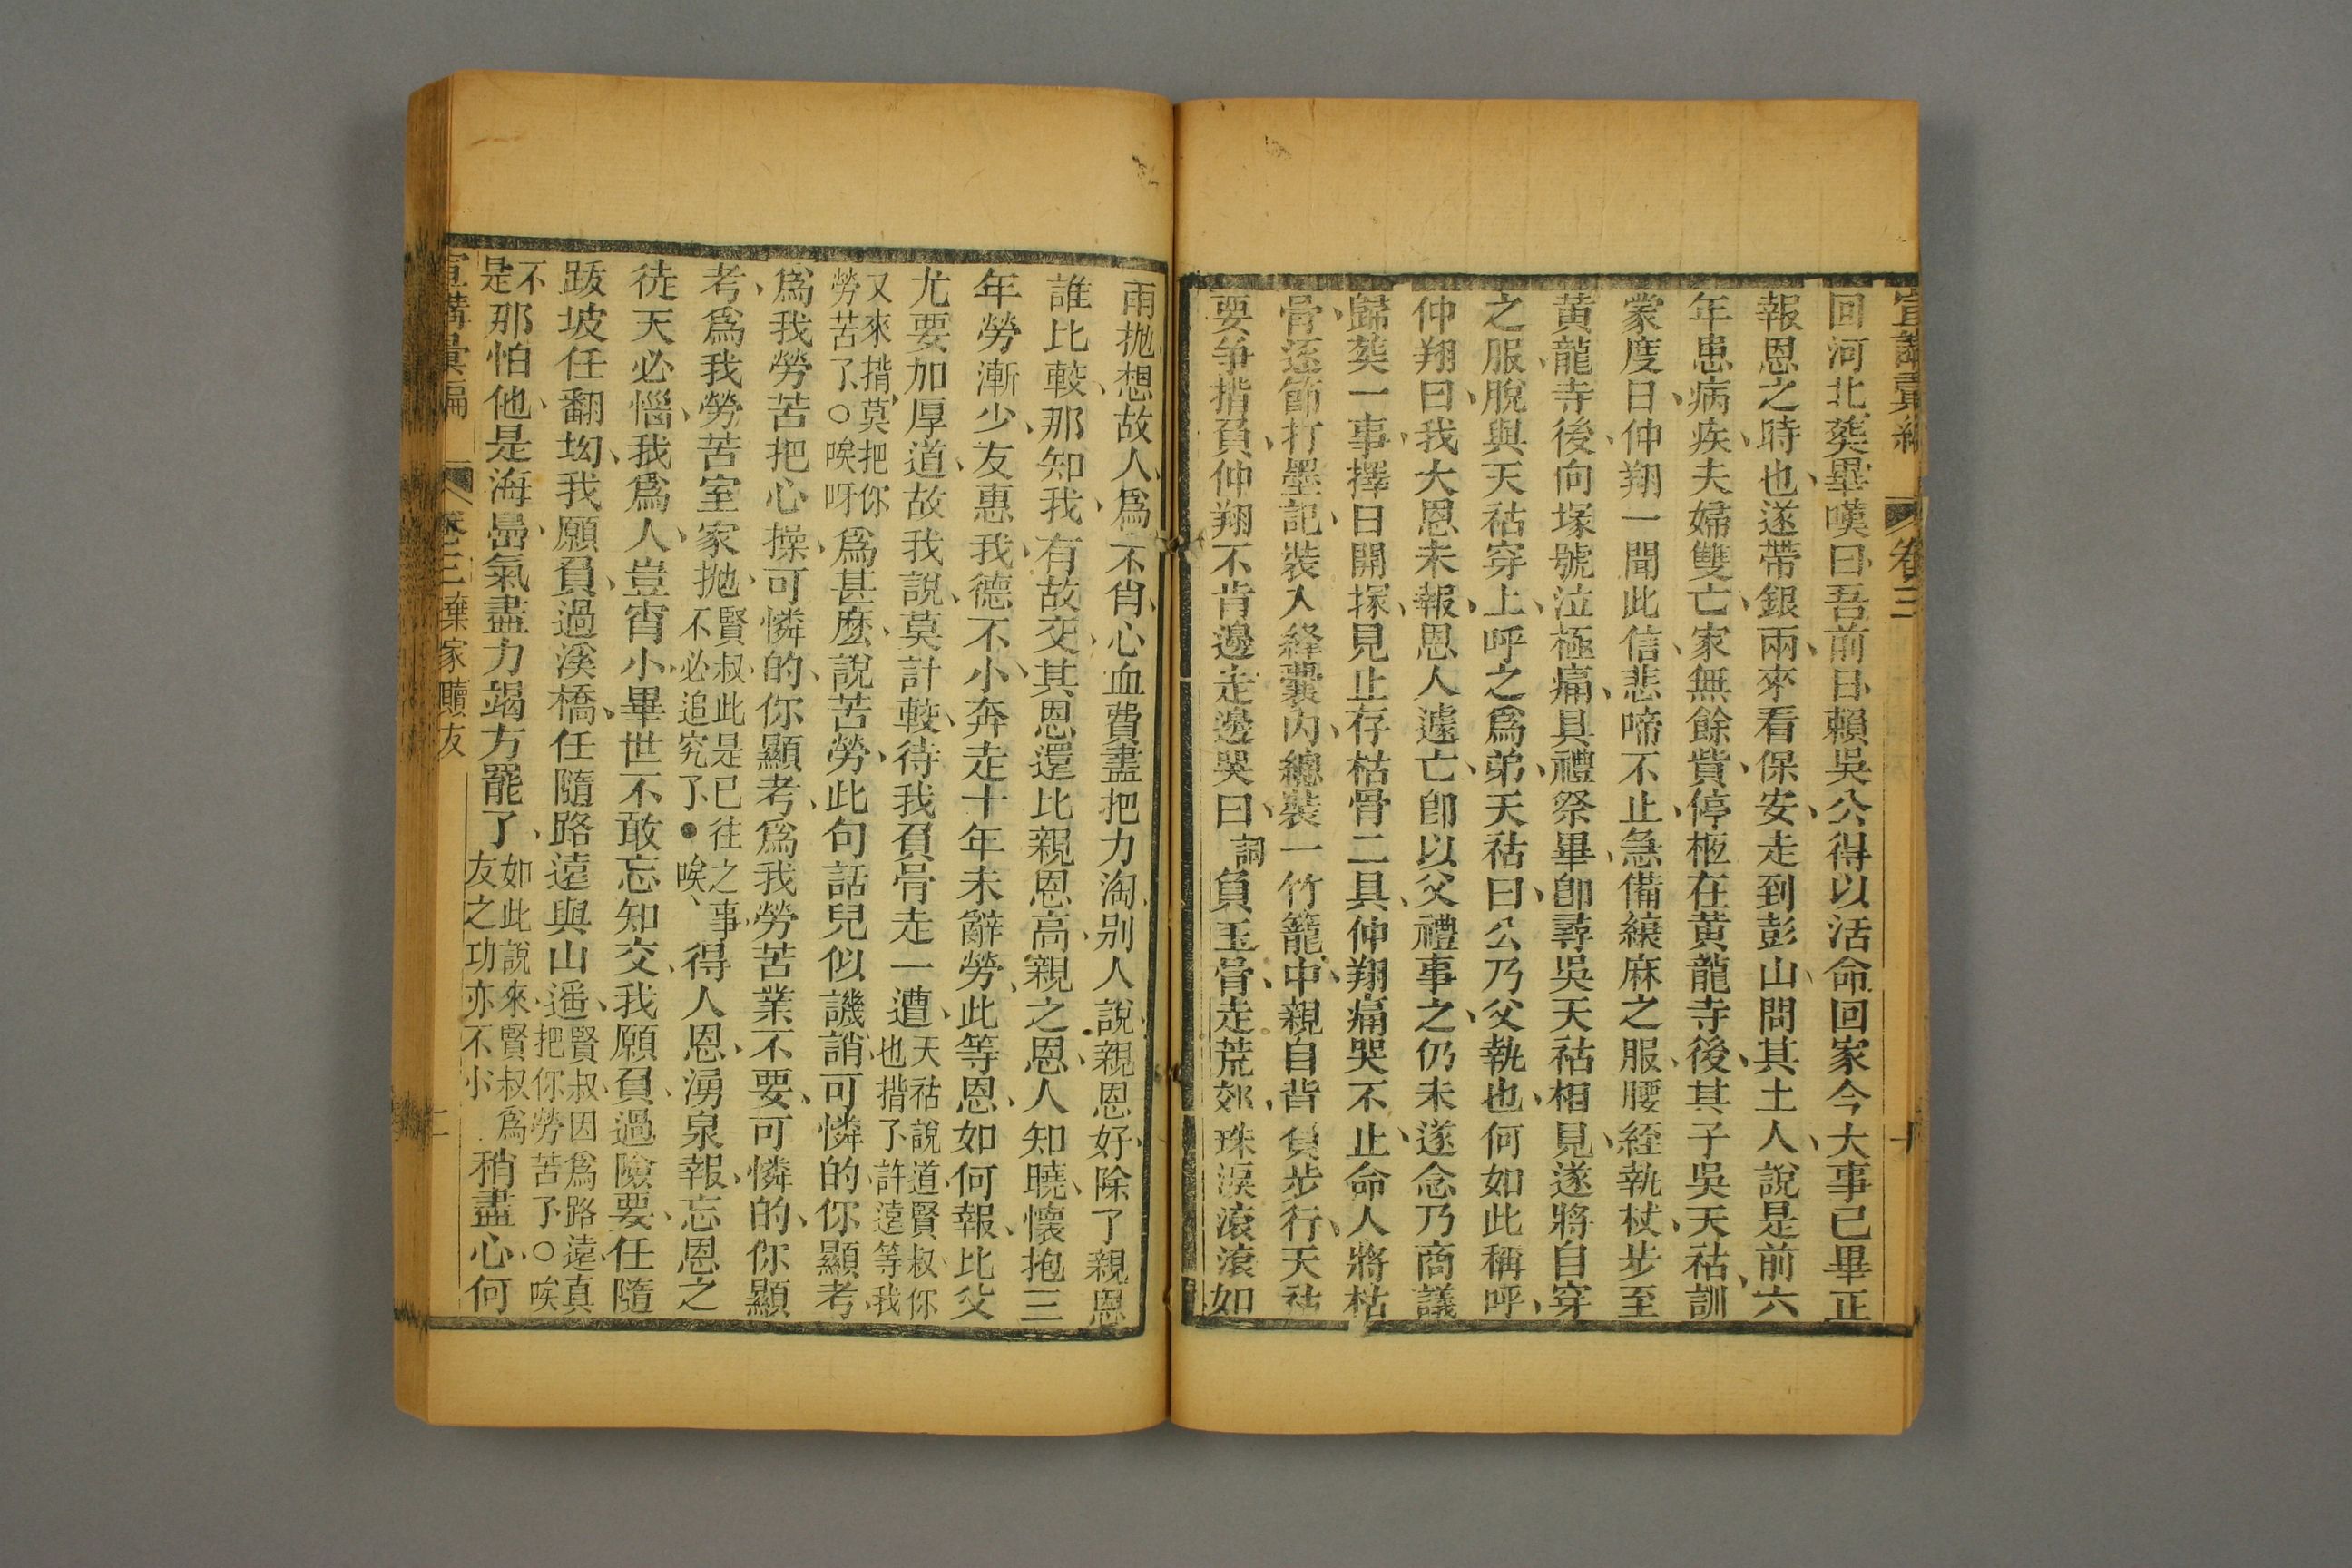 宣講彙編 卷三 十
回河北葬畢嘆曰吾前日賴吳公得以活命回家今大事已畢正
報恩之時也遂帶銀兩來看保安走到彭山問其土人說是前六
年患病疾夫婦雙亡家無餘貲停柩在黃龍寺後其子吳天祜訓
蒙度日仲翔一聞此信悲啼不止急備縗麻之服腰絰執杖步至
黃龍寺後向塚號泣極痛具禮祭畢卽尋吳天祜相見遂將自穿
之服脫與天祜穿上呼之爲弟天祜曰公乃父執也何如此稱呼
仲翔曰我大恩未報恩人遽亡卽以父禮事之仍未遂念乃商議
歸葬一事擇日開塚見止存枯骨二具仲翔痛哭不止命人將枯
骨逐節打墨記裝入經囊內總裝一竹籠中親自背負步行天祜
要爭揹負仲翔不肯邊走邊哭曰詞負玉骨走荒郊珠淚滾滾如
雨拋想故人爲不肖心血費盡把力淘别人說親恩好除了親恩
誰比較那知我有故交其恩還比親恩高親之恩人知曉懷抱三
年勞漸少友惠我德不小奔走十年未辭勞此等恩如何報比父
尤要加厚道故我說莫計較待我負骨走一遭天祜說道賢叔你
也揹了許遠等我
又來揹莫把你
勞苦了○唉呀爲甚麽說苦勞此句話兒似譏誚可憐的你顯考
爲我勞苦把心操可憐的你顯考爲我勞苦業不要可憐的你顯
考爲我勞苦室家拋賢叔此是已往之事
不必追究了●唉得人恩湧泉報忘恩之
徒天必惱我爲人豈宵小畢世不敢忘知交我願負過險要任隨
跋坡任翻坳我願負過溪橋任隨路遠與山遥賢叔因爲路遠真
把你勞苦了○唉
不
是那怕他是海島氣盡力竭方罷了如此說來賢叔爲
友之功亦不小稍盡心何
宣講彙編 卷三棄家贖友